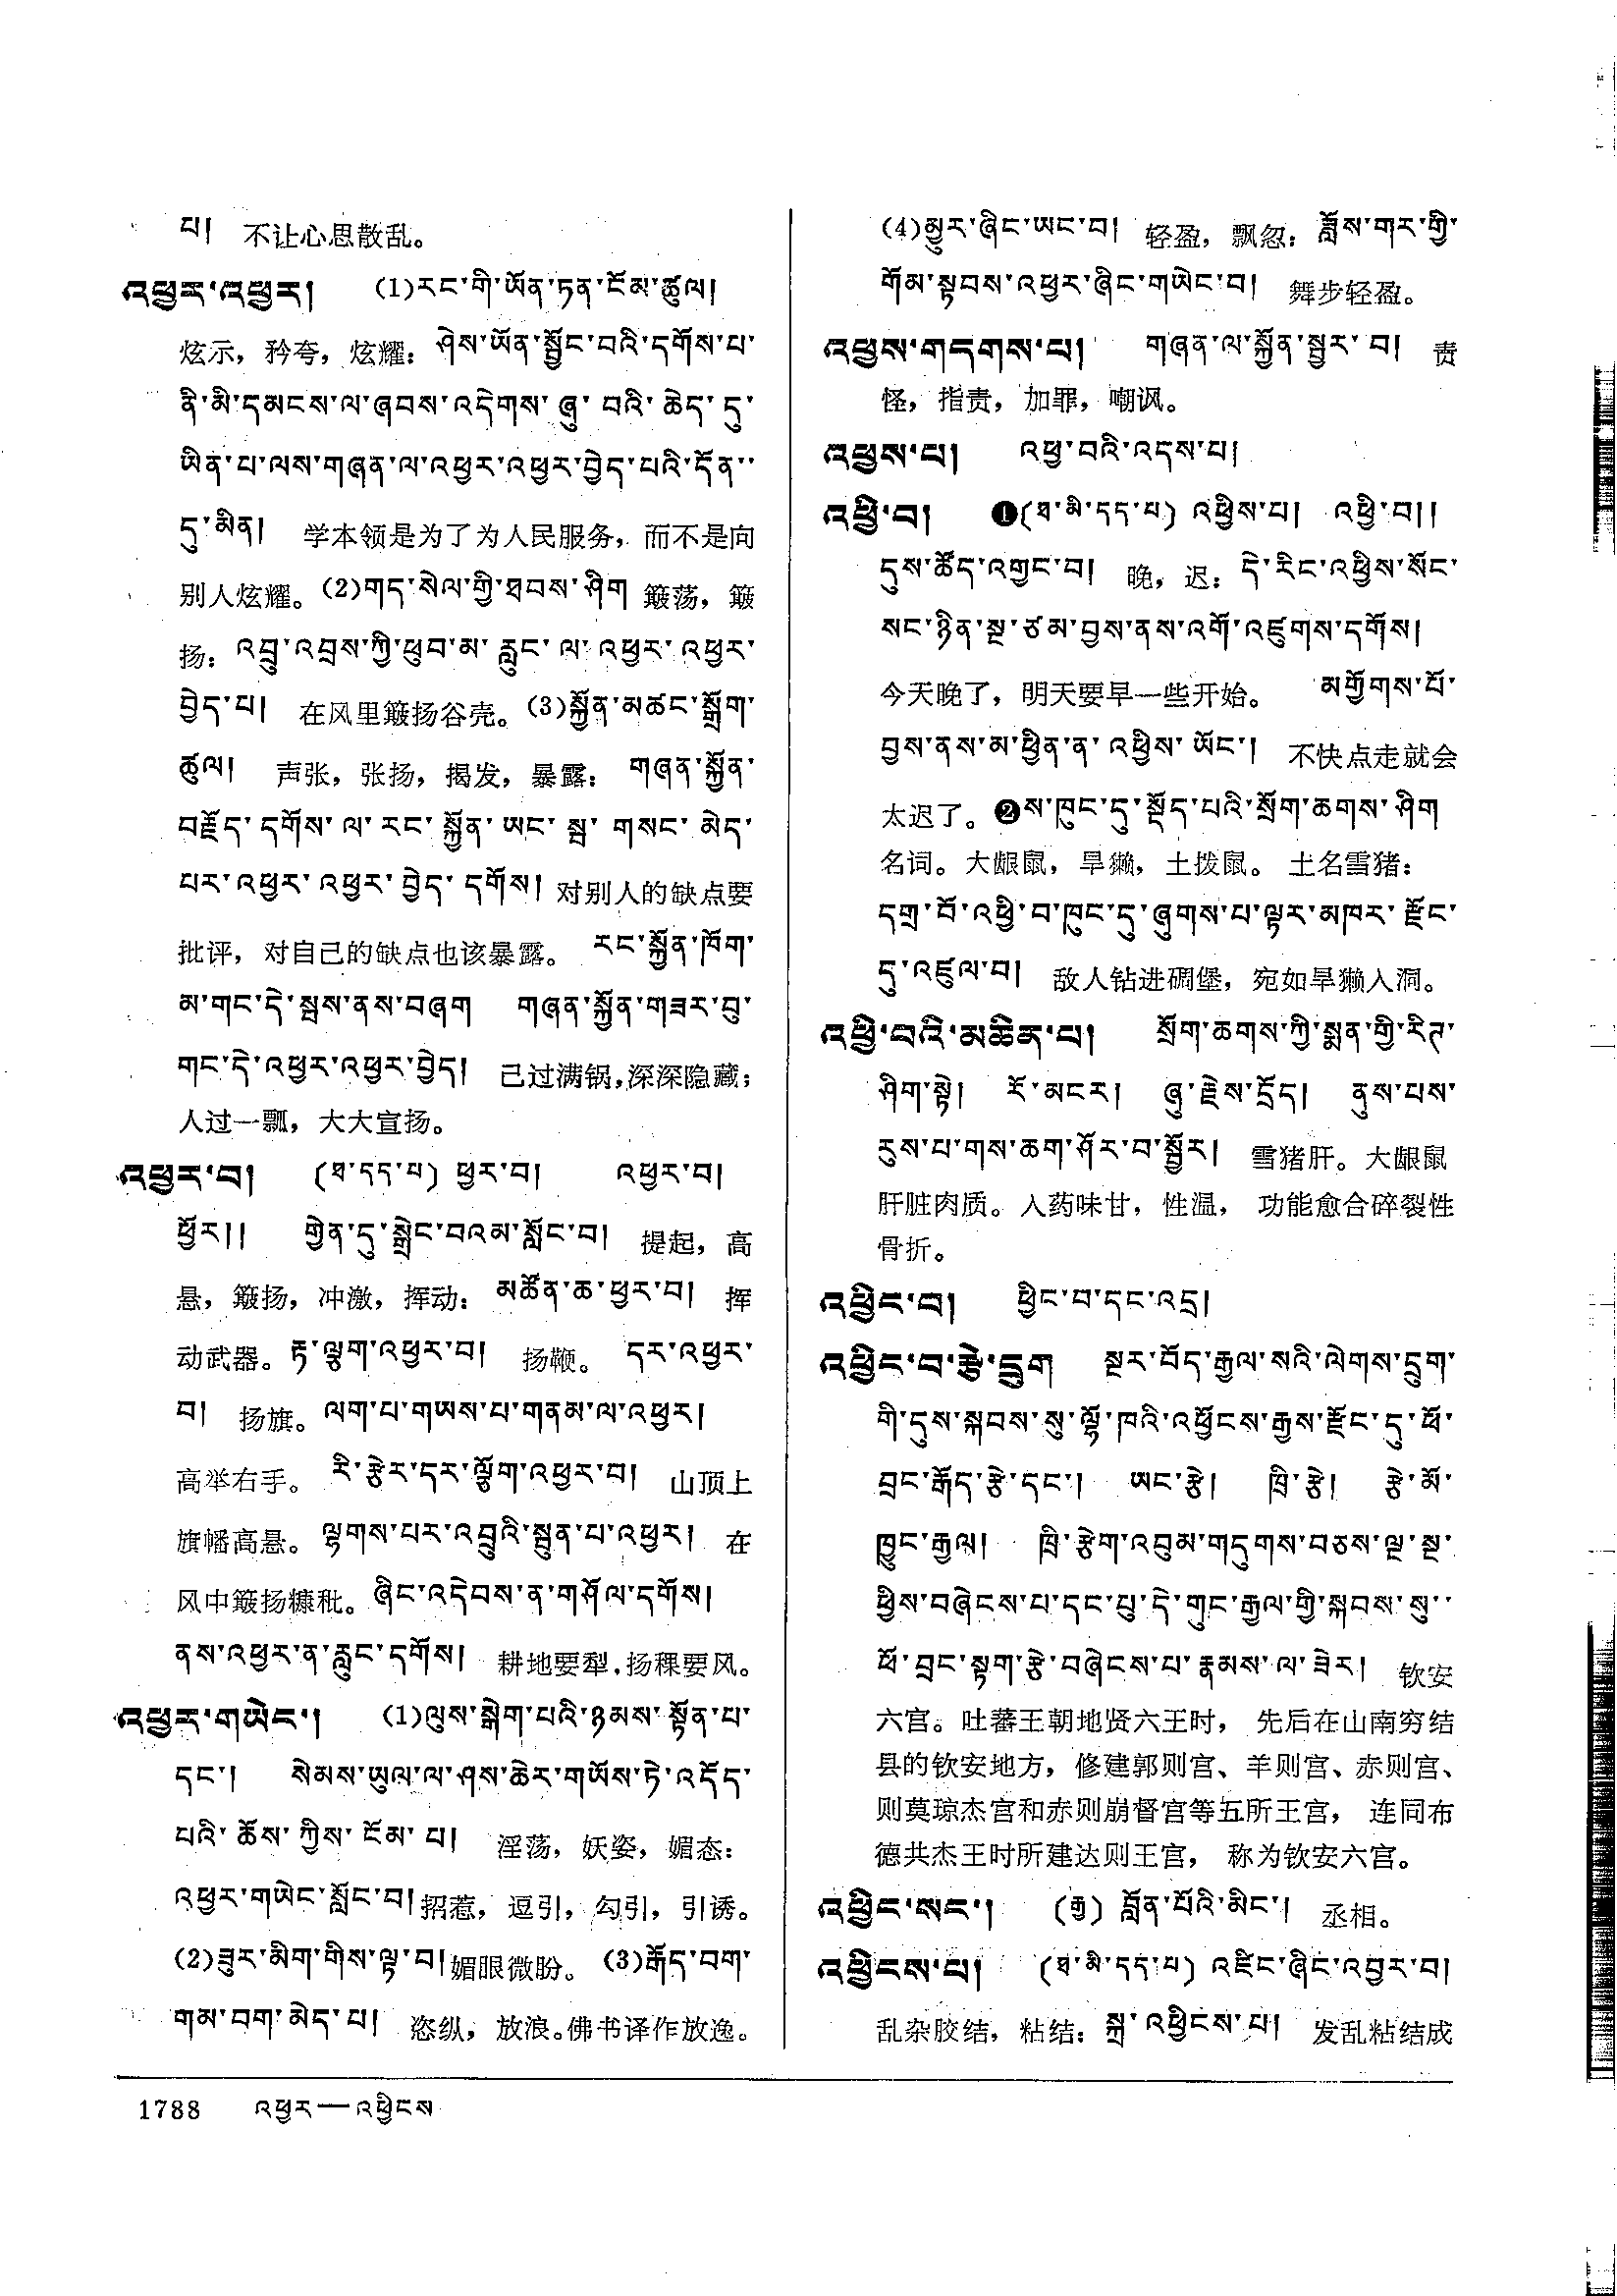 པ། 不让心思散乱。
འཕྱར་འཕྱར། (1)རང་གི་ཡོན་ཏན་ངོམ་ཚུལ།
炫示，矜夸，炫耀：ཤེས་ཡོན་སྦྱོང་བའི་དགོས་པ་
ནི་མི་དམངས་ལ་ཞབས་འདེགས་ཞུ་བའི་ཆེད་དུ་
ཡིན་པ་ལས་གཞན་ལ་འཕྱར་འཕྱར་བྱེད་པའི་དོན་
དུ་མིན། 学本领是为了为人民服务，而不是向
别人炫耀。(2)གད་སེལ་གྱི་ཐབས་ཤིག 簸荡，簸
扬：འབྲུ་འབྲས་ཀྱི་ཕུབ་མ་རླུང་ལ་འཕྱར་འཕྱར་
བྱེད་པ། 在风里簸扬谷壳。(3)སྐྱོན་མཚང་སྒྲོག་
ཚུལ། 声张，张扬，揭发，暴露：གཞན་སྐྱོན་
བརྗོད་དགོས་ལ་རང་སྐྱོན་ཡང་སྦ་གསང་མེད་
པར་འཕྱར་འཕྱར་བྱེད་དགོས། 对别人的缺点要
批评，对自己的缺点也该暴露。 རང་སྐྱོན་ཁོག་
མ་གང་དེ་སྦས་ནས་བཞག གཞན་སྐྱོན་གཟར་བུ་
གང་དེ་འཕྱར་འཕྱར་བྱེད། 己过满锅，深深隐藏；
人过一瓢，大大宣扬。
འཕྱར་བ། (ཐ་དད་པ) ཕྱར་བ། འཕྱར་བ།
ཕྱོར།། གྱེན་དུ་སྒྲེང་བའམ་སློང་བ། 提起，高
悬，簸扬，冲激，挥动：མཚོན་ཆ་ཕྱར་བ། 挥
动武器。རྟ་ལྕག་འཕྱར་བ། 扬鞭。 དར་འཕྱར་
བ། 扬旗。ལག་པ་གཡས་པ་གནམ་ལ་འཕྱར།
高举右手。 རི་རྩེར་དར་ལྕོག་འཕྱར་བ། 山顶上
旗幡高悬。ལྷགས་པར་འབྲུའི་སྦུན་པ་འཕྱར། 在
风中簸扬糠秕。ཞིང་འདེབས་ན་གཤོལ་དགོས།
ནས་འཕྱར་ན་རླུང་དགོས། 耕地要犁，扬稞要风。
འཕྱར་གཡེང་། (1)ལུས་སྒེག་པའི་ཉམས་སྟོན་པ་
དང་། སེམས་ཡུལ་ལ་ཤས་ཆེར་གཡོས་ཏེ་འདོད་
པའི་ཆོས་ཀྱིས་ངོམ་པ། 淫荡，妖姿，媚态：
འཕྱར་གཡེང་སློང་བ། 招惹，逗引，勾引，引诱。
(2)ཟུར་མིག་གིས་ལྟ་བ། 媚眼微盼。(3)རྒོད་བག་
གམ་བག་མེད་པ། 恣纵，放浪。佛书译作放逸。
(4)མྱུར་ཞིང་ཡང་བ། 轻盈，飘忽：ཟློས་གར་གྱི་
གོམ་སྟབས་འཕྱར་ཞིང་གཡེང་བ། 舞步轻盈。
འཕྱས་གདགས་པ། གཞན་ལ་སྐྱོན་སྦྱར་བ། 责
怪，指责，加罪，嘲讽。
འཕྱས་པ། འཕྱ་བའི་འདས་པ།
འཕྱི་བ། ❶(ཐ་མི་དད་པ) འཕྱིས་པ། འཕྱི་བ།།
དུས་ཚོད་འགྱང་བ། 晚，迟：དེ་རིང་འཕྱིས་སོང་
སང་ཉིན་སྔ་ཙམ་བྱས་ནས་འགོ་འཛུགས་དགོས།
今天晚了，明天要早一些开始。 མགྱོགས་པོ་
བྱས་ནས་མ་ཕྱིན་ན་འཕྱིས་ཡོང་། 不快点走就会
太迟了。❷ས་ཁུང་དུ་སྡོད་པའི་སྲོག་ཆགས་ཤིག
名词。大龈鼠，旱獭，土拨鼠。土名雪猪：
དགྲ་བོ་འཕྱི་བ་ཁུང་དུ་ཞུགས་པ་ལྟར་མཁར་རྫོང་
དུ་འཛུལ་བ། 敌人钻进碉堡，宛如旱獭入洞。
འཕྱི་བའི་མཆིན་པ། སྲོག་ཆགས་ཀྱི་སྨན་གྱི་རིཊ་
ཤིག་སྟེ། རོ་མངར། ཞུ་རྗེས་དྲོད། ནུས་པས་
རུས་པ་གས་ཆག་ཤོར་བ་སྦྱོར། 雪猪肝。大龈鼠
肝脏肉质。入药味甘，性温，功能愈合碎裂性
骨折。
འཕྱིང་བ། ཕྱིང་བ་དང་འདྲ།
འཕྱིང་བ་རྩེ་དྲུག སྔར་བོད་རྒྱལ་སའི་ལེགས་དྲུག་
གི་དུས་སྐབས་སུ་ལྷོ་ཁའི་འཕྱོངས་རྒྱས་རྫོང་དུ་ཕོ་
བྲང་རྒོད་རྩེ་དང་། ཡང་རྩེ། ཁྲི་རྩེ། རྩེ་མོ་
ཁྱུང་རྒྱལ། ཁྲི་རྩེག་འབུམ་གདུགས་བཅས་ལྔ་སྔ་
ཕྱིས་བཞེངས་པ་དང་པུ་དེ་གུང་རྒྱལ་གྱི་སྐབས་སུ་
ཕོ་བྲང་སྟག་རྩེ་བཞེངས་པ་རྣམས་ལ་ཟེར། 钦安
六宫。吐蕃王朝地贤六王时，先后在山南穷结
县的钦安地方，修建郭则宫、羊则宫、赤则宫、
则莫琼杰宫和赤则崩督宫等五所王宫，连同布
德共杰王时所建达则王宫，称为钦安六宫。
འཕྱིང་སང་། (རྒྱ) བློན་པོའི་མིང་། 丞相。
འཕྱིངས་པ། (ཐ་མི་དད་པ) འཛིང་ཞིང་འབྱར་བ།
乱杂胶结，粘结：སྐྲ་འཕྱིངས་པ། 发乱粘结成
1788 འཕྱར—འཕྱིངས